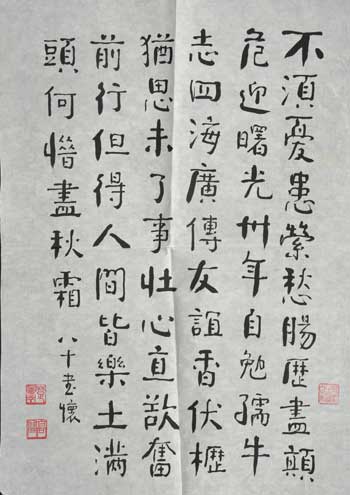 不須憂患縈愁腸歷盡顛
危迎曙光卅年自勉孺牛
志四海廣傳友誼香伏櫪
猶思未了事壯心直欲奮
前行但得人間皆樂土滿
頭何惜盡秋霜 八十書懷